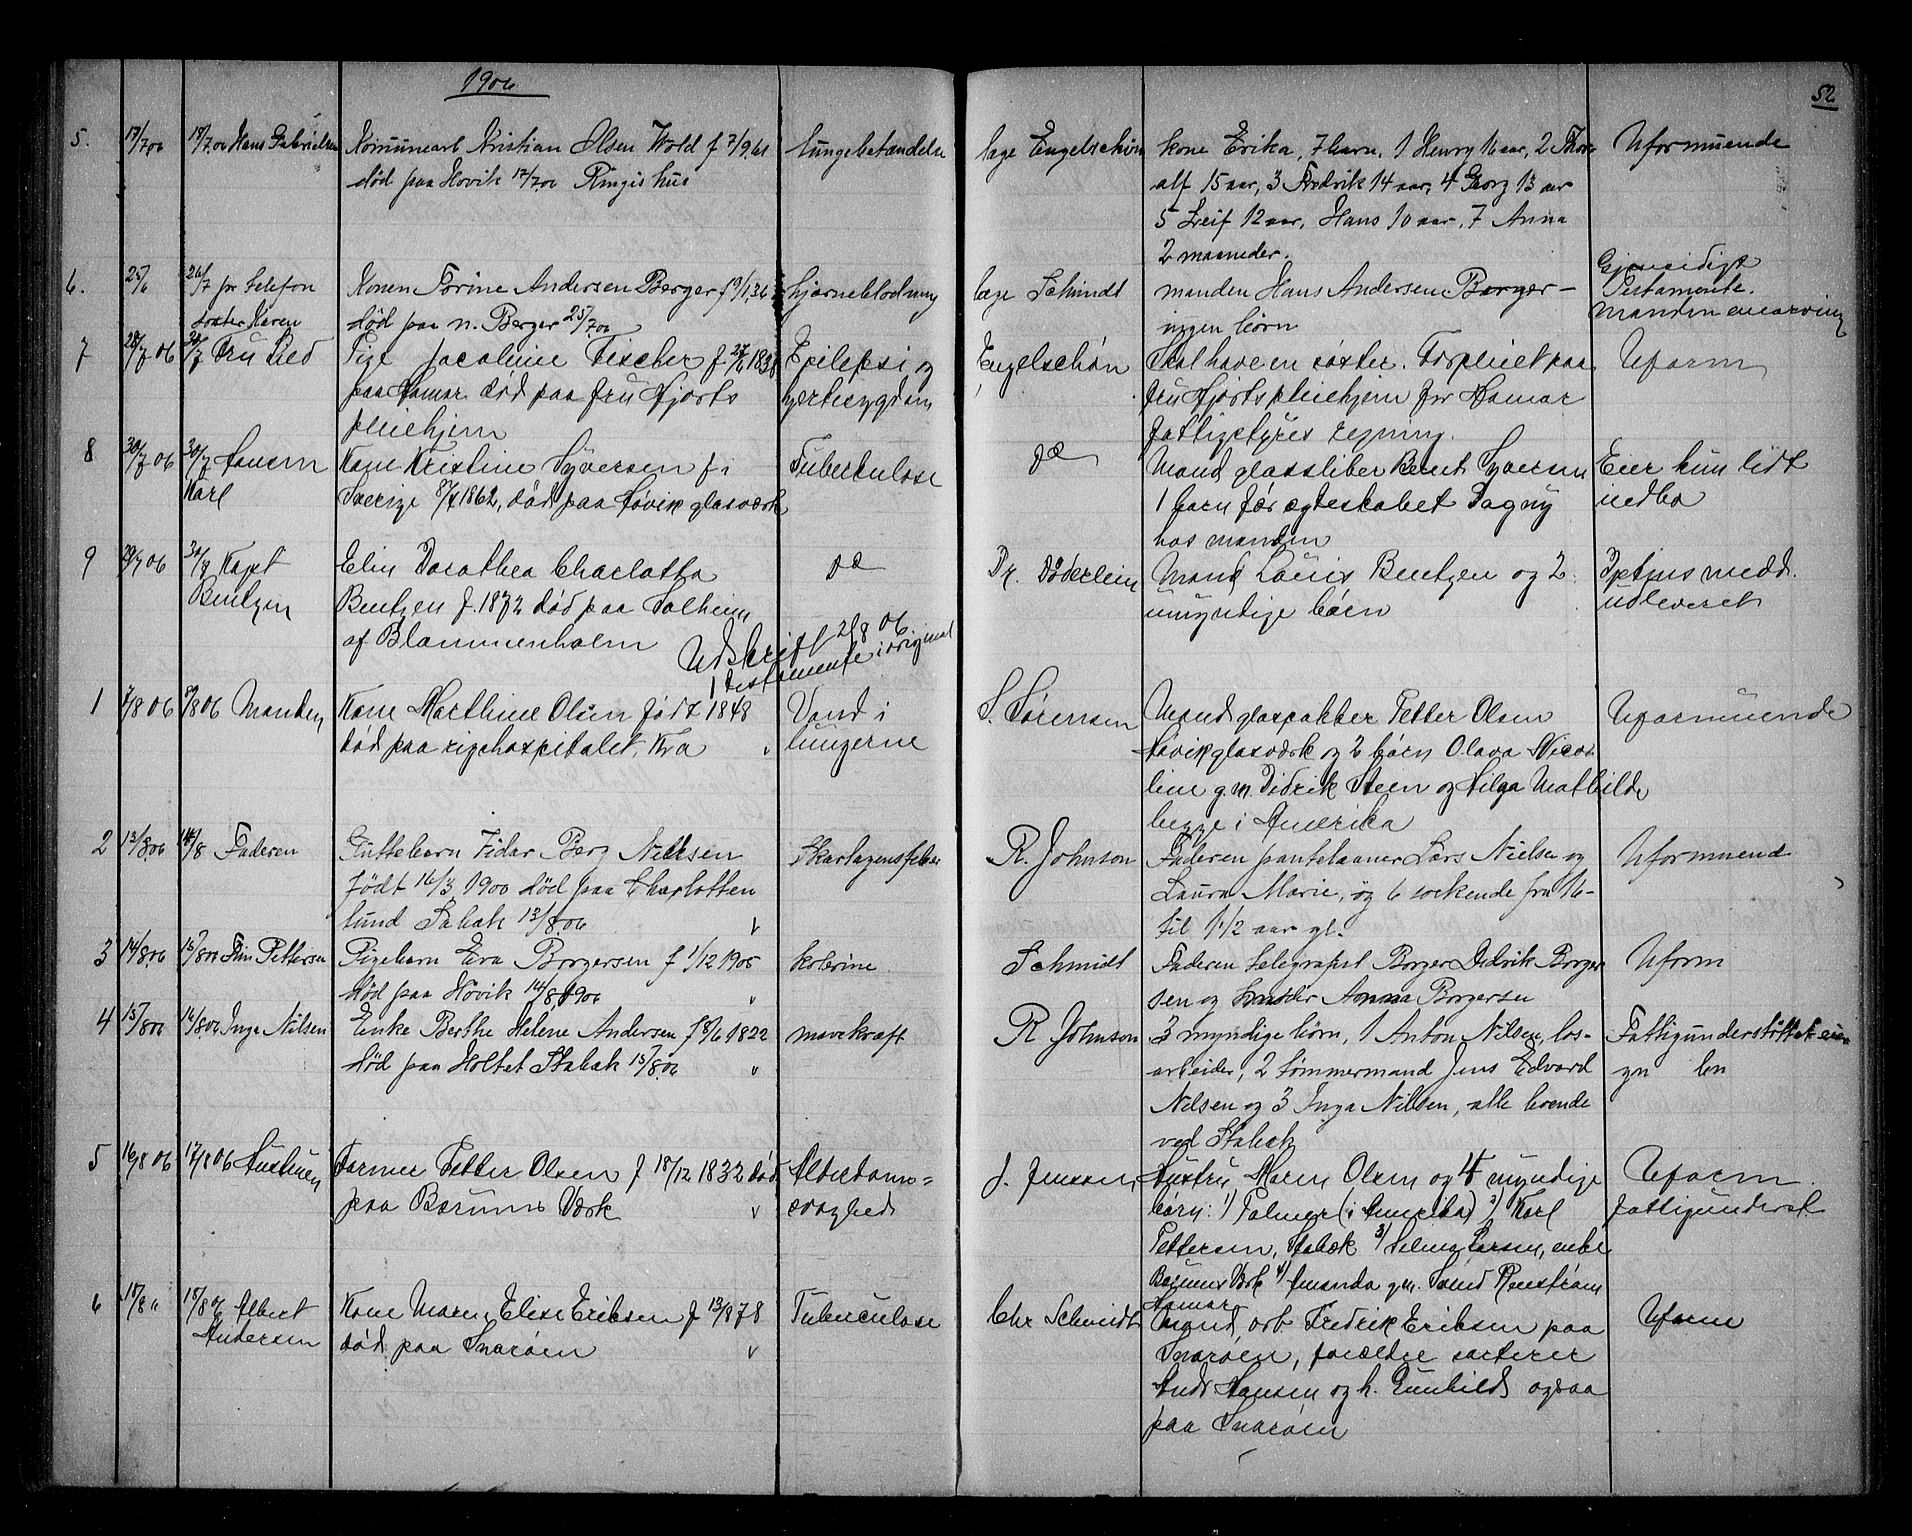 1906
52
5. 17/7 06 18/7 06 Hans Gabrielsen Kommunearb Kristian Olsen Wold f 7/9 61 lungebetændelse læge Engelschiøn kone Erika, 7 barn, 1 Henry 16 aar, 2 Thor- Uformuende
død paa Høvik 17/7 06 Ringis hus alf 15 aar, 3 Fredrik 14 aar, 4 Georg 13 aar
5 Leif 12 aar, Hans 10 aar, 7 Anna
2 maaneder.
6. 25/6 26/7 pr telefon Konen Torine Andersen Berger hjerneblødning læge Schmidt manden Hans Andersen Berger – Gjensidigt
søster Karen død paa n. Berger 25/7 06 ingen børn Testamente.
manden enearving
7 28/7 06 Fru Lied Pige Jacobine Fischer f 1838 Epilepsi og Engelschøn Skal have en søster. Forpleiet paa Uform
paa Hamar død paa fru Hjorts hjertesygdom fru Hjorts pleiehjem for Hamar
pleiehjem fattigstyres regning.
8 30/7 06 30/7 Lauern Kone Kristine Syversen f i Tuberkulose do Mand glassliber Bernt Syversen Eier kun lidt
Karl Sverige 1862, død paa Høvik glasværk 1 barn før ægteskabet Dagny indbo
hos manden
9 29/7 06 30/7 Kapt Elin Dorothea Charlotta do Dr. Döderlein Mand Louis Bentzen og 2 medd.
Bentzen Bentzen f. 1872 død paa Solheim umyndige børn udleveret
af Blommenholm Udskrift 2/8 06.
1 testamente i original
1 7/8 06 8/8 06 Manden Kone Marthine Olsen født 1848 Vand i S. Sørensen Mand glaspakker Petter Olsen Uformuende
død paa rigshospitalet, Kra lungerne Høvik glasværk og 2 børn Olava Nico-
line g.m. Didrik Steen og Hilga Mathilde
begge i Amerika
2 13/8 06 14/8 Faderen Guttebarn Vidar Berg Nielsen Skarlagensfeber R. Johnson Faderen pantelaaner Lars Nielsen og Uformuend
født 16/3 1900 død paa Charlotten Laura Marie, og 6 søskende fra 16-
lund Stabæk 13/8 06 til 1 1/2 aar gl.
3 14/8 06 15/8 06 Finn Pettersen Pigebarn Eva Borgersen f 1/12 1905 kolerine Schmidt Faderen telegrafist Borger Didrik Borger Uform
død paa Høvik 14/8 1906 sen og hustru Anna Borgersen
4 15/8 06 16/8 06 Inga Nilsen Enke Berthe Helene Andersen f 8/6 1822 mavekræft R Johnson 3 myndige børn, 1 Anton Nilsen, løs-
død paa Holtet Stabæk 15/8 06 arbeider, 2 tømmermand Jens Edvard
Fattigunderstøttet
Nilsen og 3 Inga Nilsen, alle boende
ved Stabæk
5 16/8 06 17/8 06 Hustruen Former Petter Olsen f 18/12 1832 død Alderdoms= J. Jenssen Hustru Maren Olsen og 4 myndige Uform.
paa Bærums Værk svaghed børn: 1) Palmer (i Amerika) 2) Karl fattigunderst.
Pettersen, Stabæk 3) Selma Larsen, enke
Bærums Værk 4) Amanda g.m. Svend Renström
Hamar
6 18/8 06 Albert Kone Maren Elise Eriksen f 13/ 878 Tuberculose Chr Schmidt Mand, arb. Fredrik Eriksen paa Uform
Andersen død paa Snarøen Snarøen, forældre
Andr Hansen og h. Gunhild ogsaa
paa Snarøen